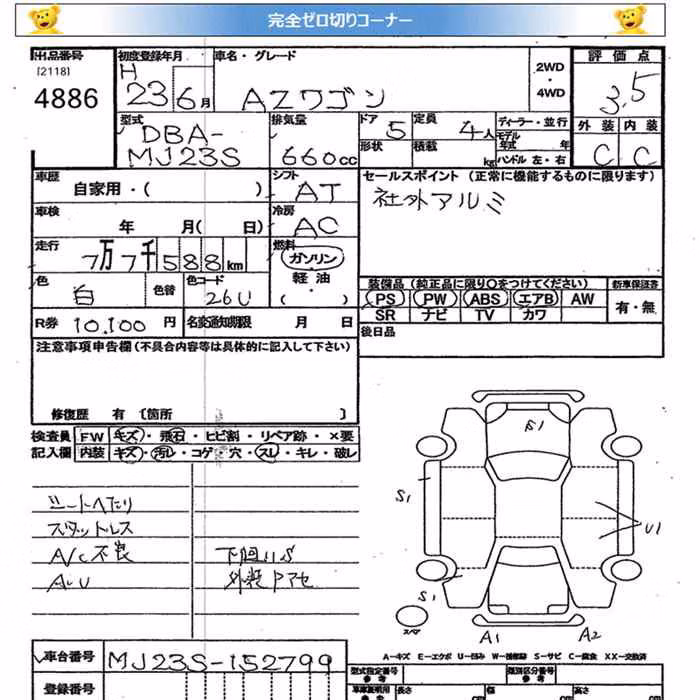 完全ゼロ切りコーナー
出品番号
[2118]
4886
初度登録年月
H
23 6月
車名・グレード
AZワゴン
2WD
・
4WD
評価点
3.5
型式
DBA-
MJ23S
排気量
660cc
ドア
5
定員
4人
ディーラー・並行
モデル
年式 年
形状
積載
kg
ハンドル 左・右
外装
内装
C
C
車歴
自家用・( )
シフト
AT
セールスポイント (正常に機能するものに限ります)
社外アルミ
車検
年 月( 日)
冷房
AC
走行
7万7千588km
燃料
ガソリン
軽油
・( )
色
白
色替
色コード
26U
装備品 (純正品に限り○をつけてください)
新車保証書
PS PW ABS エアB AW
SR ナビ TV カワ
有・無
R券 10,100 円
名変通知期限 月 日
後日品
注意事項申告欄 (不具合内容等は具体的に記入して下さい)
修復歴 有 〔箇所 〕
検査員
記入欄
FW キズ・飛石・ヒビ割・リペア跡・×要
内装 キズ・汚レ・コゲ・穴・スレ・キレ・破レ
シートヘたり
スタットレス
A/C不良
下回りS
外装アマセ
S1
S1
U1
S1
スペア
A1
A2
A-キズ E-エクボ U-凹み W-補修跡 S-サビ C-腐食 XX-交換済
車台番号
MJ23S-152799
登録番号
型式指定番号
類別区分番号
車庫証明用
長さ
cm
幅
cm
高さ
cm